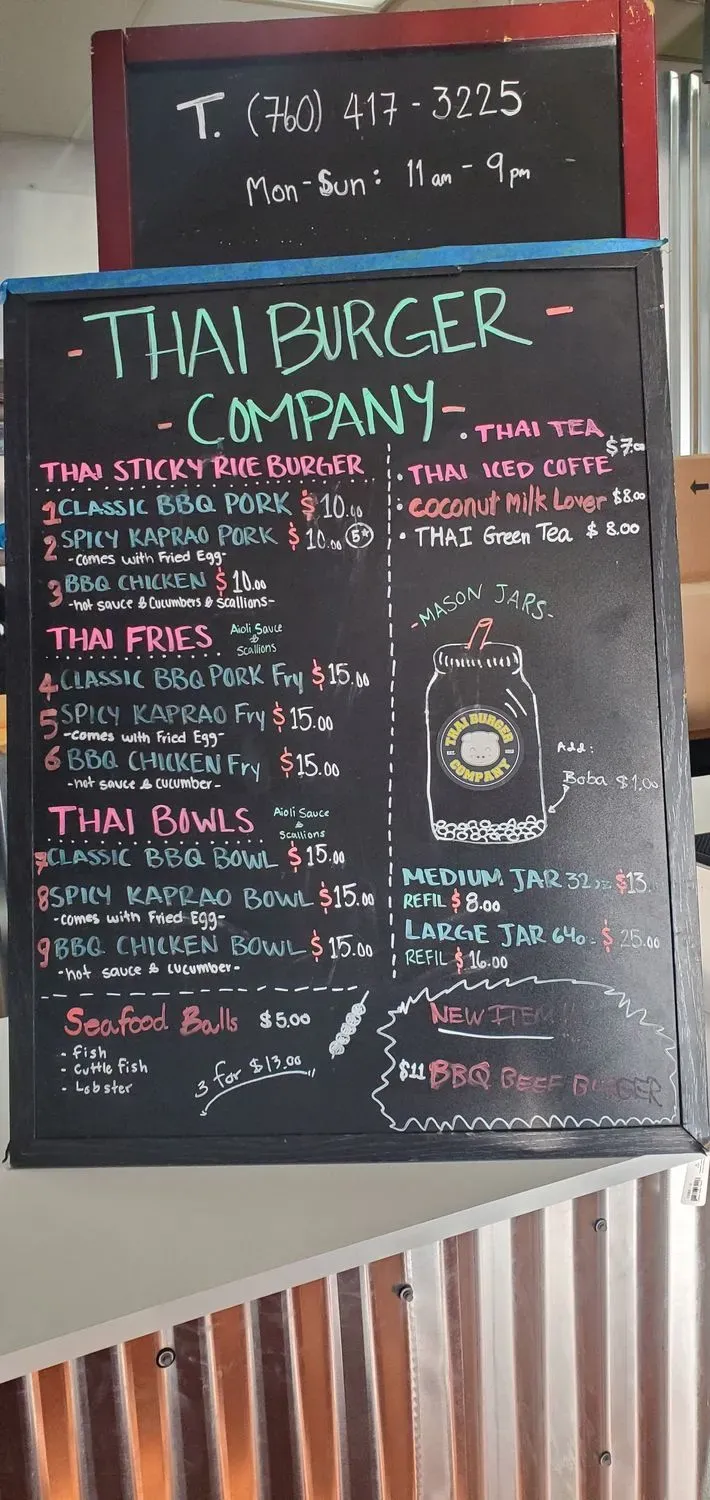 T. (760) 417-3225
Mon-Sun: 11am - 9pm
- THAI BURGER -
- COMPANY -
THAI STICKY RICE BURGER
1 CLASSIC BBQ PORK $10.00
2 SPICY KAPRAO PORK $10.00 5*
-comes with Fried Egg-
3 BBQ CHICKEN $10.00
-hot sauce & Cucumbers & Scallions-
THAI FRIES Aioli Sauce & Scallions
4 CLASSIC BBQ PORK Fry $15.00
5 SPICY KAPRAO Fry $15.00
-comes with Fried Egg-
6 BBQ CHICKEN Fry $15.00
-hot sauce & cucumber-
THAI BOWLS Aioli Sauce & Scallions
7 CLASSIC BBQ BOWL $15.00
8 SPICY KAPRAO BOWL $15.00
-comes with Fried Egg-
9 BBQ CHICKEN BOWL $15.00
-hot sauce & cucumber-
Seafood Balls $5.00
- Fish
- Cuttle fish
- Lobster
3 for $13.00
• THAI TEA
$7.00
• THAI ICED COFFE
• Coconut Milk Lover $8.00
• THAI Green Tea $8.00
-MASON JARS-
THAI BURGER
COMPANY
Add:
Boba $1.00
MEDIUM JAR 32 $13.
REFIL $8.00
LARGE JAR 64o. $25.00
REFIL $16.00
NEW ITEM
$11 BBQ BEEF BURGER